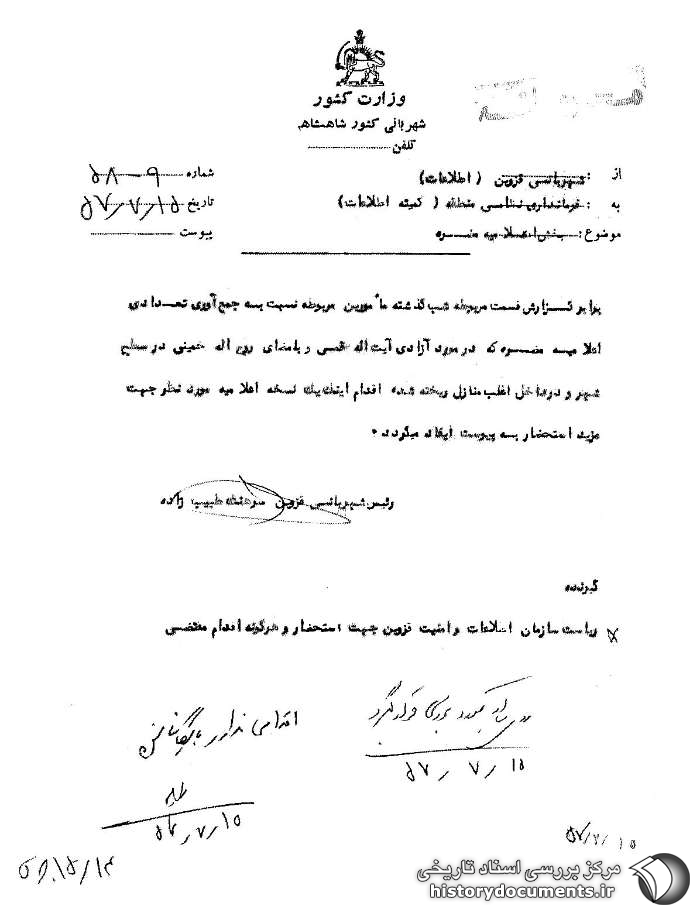 وزارت کشور
شهربانی کشور شاهنشاهی
تلفن
از : شهربانی قزوین ( اطلاعات )
شماره ۹ - ۵۸
به : فرمانداری نظامی منطقه ( کمیته اطلاعات )
تاریخ ۵۷/۷/۱۵
موضوع : پخش اعلامیه مضره
پیوست
برابر گزارش قسمت مربوطه شب گذشته مأمورین مربوطه نسبت به جمع آوری تعدادی
اعلامیه مضره که در مورد آزادی آیت اله قمی و بامضای روح اله خمینی در سطح
شهر و در داخل اغلب منازل ریخته شده اقدام اینک یک نسخه اعلامیه مورد نظر جهت
مزید استحضار به پیوست ایفاد میگردد .
رئیس شهربانی قزوین سرهنگ طبیب زاده
گیرنده
ریاست سازمان اطلاعات و امنیت قزوین جهت استحضار و هرگونه اقدام مقتضی
قرار گیرد
۵۷/۷/۱۵
اقدامی ندارد بایگانی
۵۷/۷/۱۵
۵۷/۷/۱۵
مرکز بررسی اسناد تاریخی
historydocuments.ir